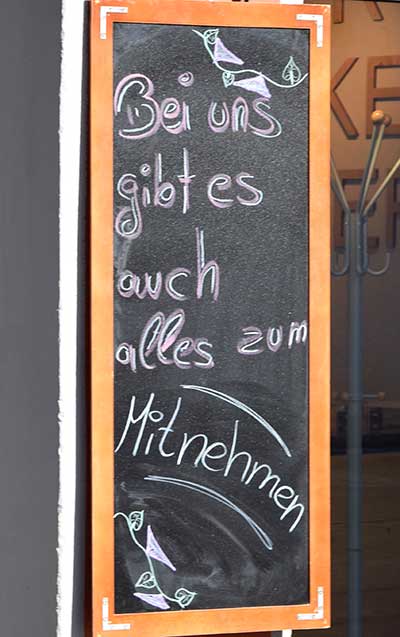 Bei uns
gibt es
auch
alles zum
Mitnehmen